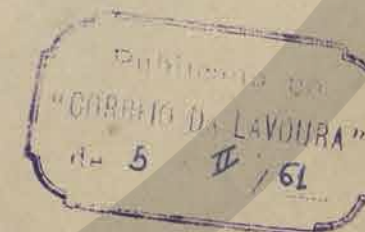 Publicado no
"CORREIO DA LAVOURA"
de 5 II / 61